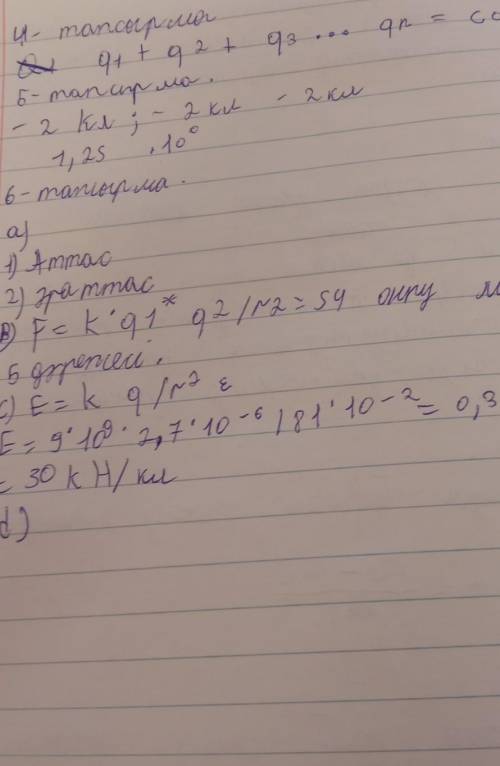 4- тапсырма
q1 + q2 + q3 ... qn = co
5- тапсырма.
- 2 Кл ; - 2 кл - 2 кл
1,25 . 10°
6- тапсырма.
а)
1) Аттас
2) Әр аттас
в) F = k · q1 * q2 / r2 = 54
5 дәрежеи.
c) E = k q / r² ε
E = 9 · 10⁹ · 2,7 · 10⁻⁶ / 81 · 10⁻² = 0,3
= 30 k H/кл
d)